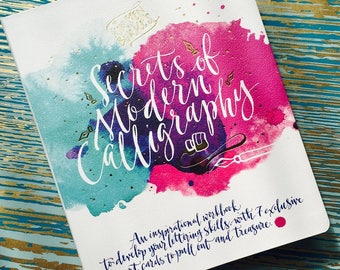 Secrets of
Modern
Calligraphy
An inspirational workbook
to develop your lettering skills, with 7 exclusive
art cards to pull out and treasure.